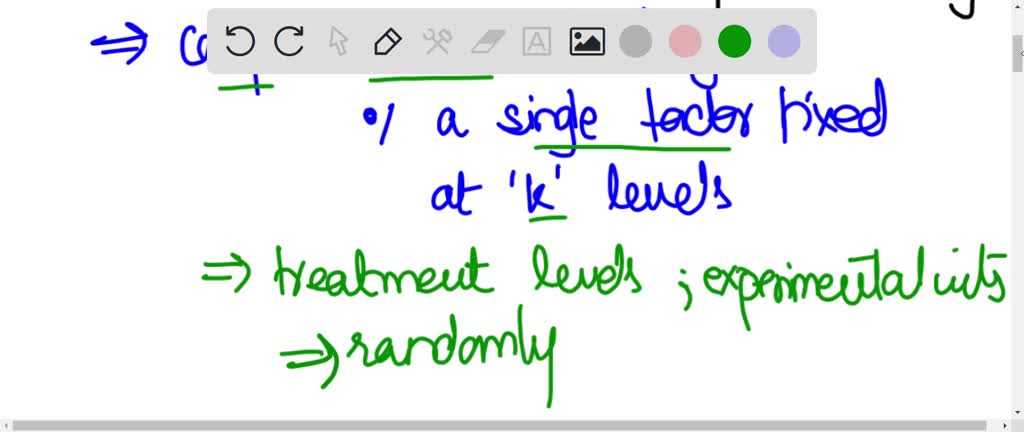 ⇒ 
of a single factor fixed
at 'k' levels
⇒ treatment levels ; experimental units
⇒ randomly